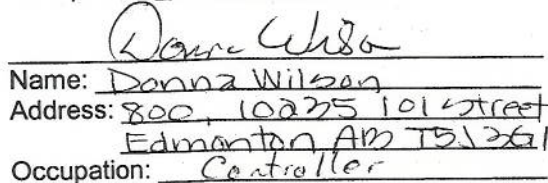 Donna Wilson
Name: Donna Wilson
Address: 800, 10235 101 Street
Edmonton AB T5J 3G1
Occupation: Controller